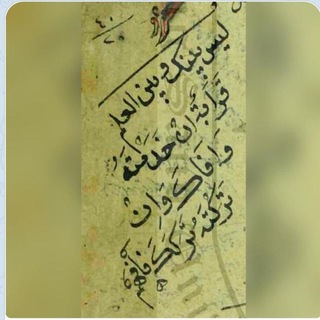 ليس بينك وبين العلم
قرابة ان خدمته
وافاك وان
تركته تركك فافهم